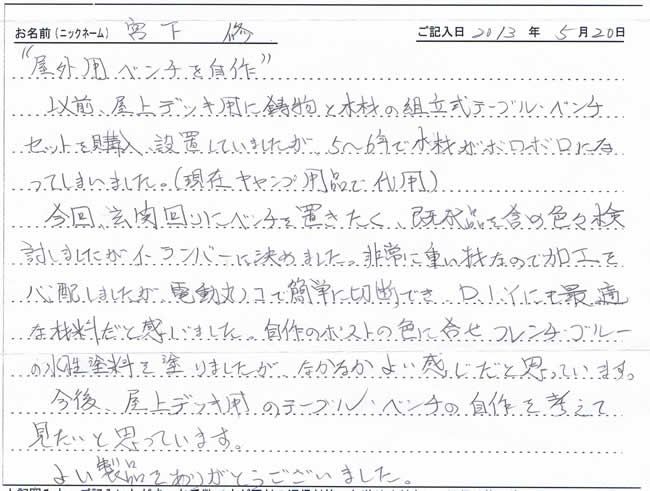 お名前(ニックネーム) 宮下 修 ご記入日 2013 年 5 月 20 日
"屋外用ベンチを自作"
以前、屋上デッキ用に鋳物と木材の組立式テーブル・ベンチ
セットを購入、設置していましたが、5〜6年で木材がボロボロにな
ってしまいました。(現在キャンプ用品で代用)
今回、玄関回りにベンチを置きたく、既成品を含め色々検
討しましたがイ・ランバーに決めました。非常に重い材なので加工を
心配しましたが、電動丸ノコで簡単に切断でき D.I.Yにも最適
な材料だと感じました。自作のポストの色に合せフレンチ・ブルー
の水性塗料を塗りましたが、なかなかよい感じだと思っています。
今後、屋上デッキ用のテーブル・ベンチの自作を考えて
見たいと思っています。
よい製品をありがとうございました。